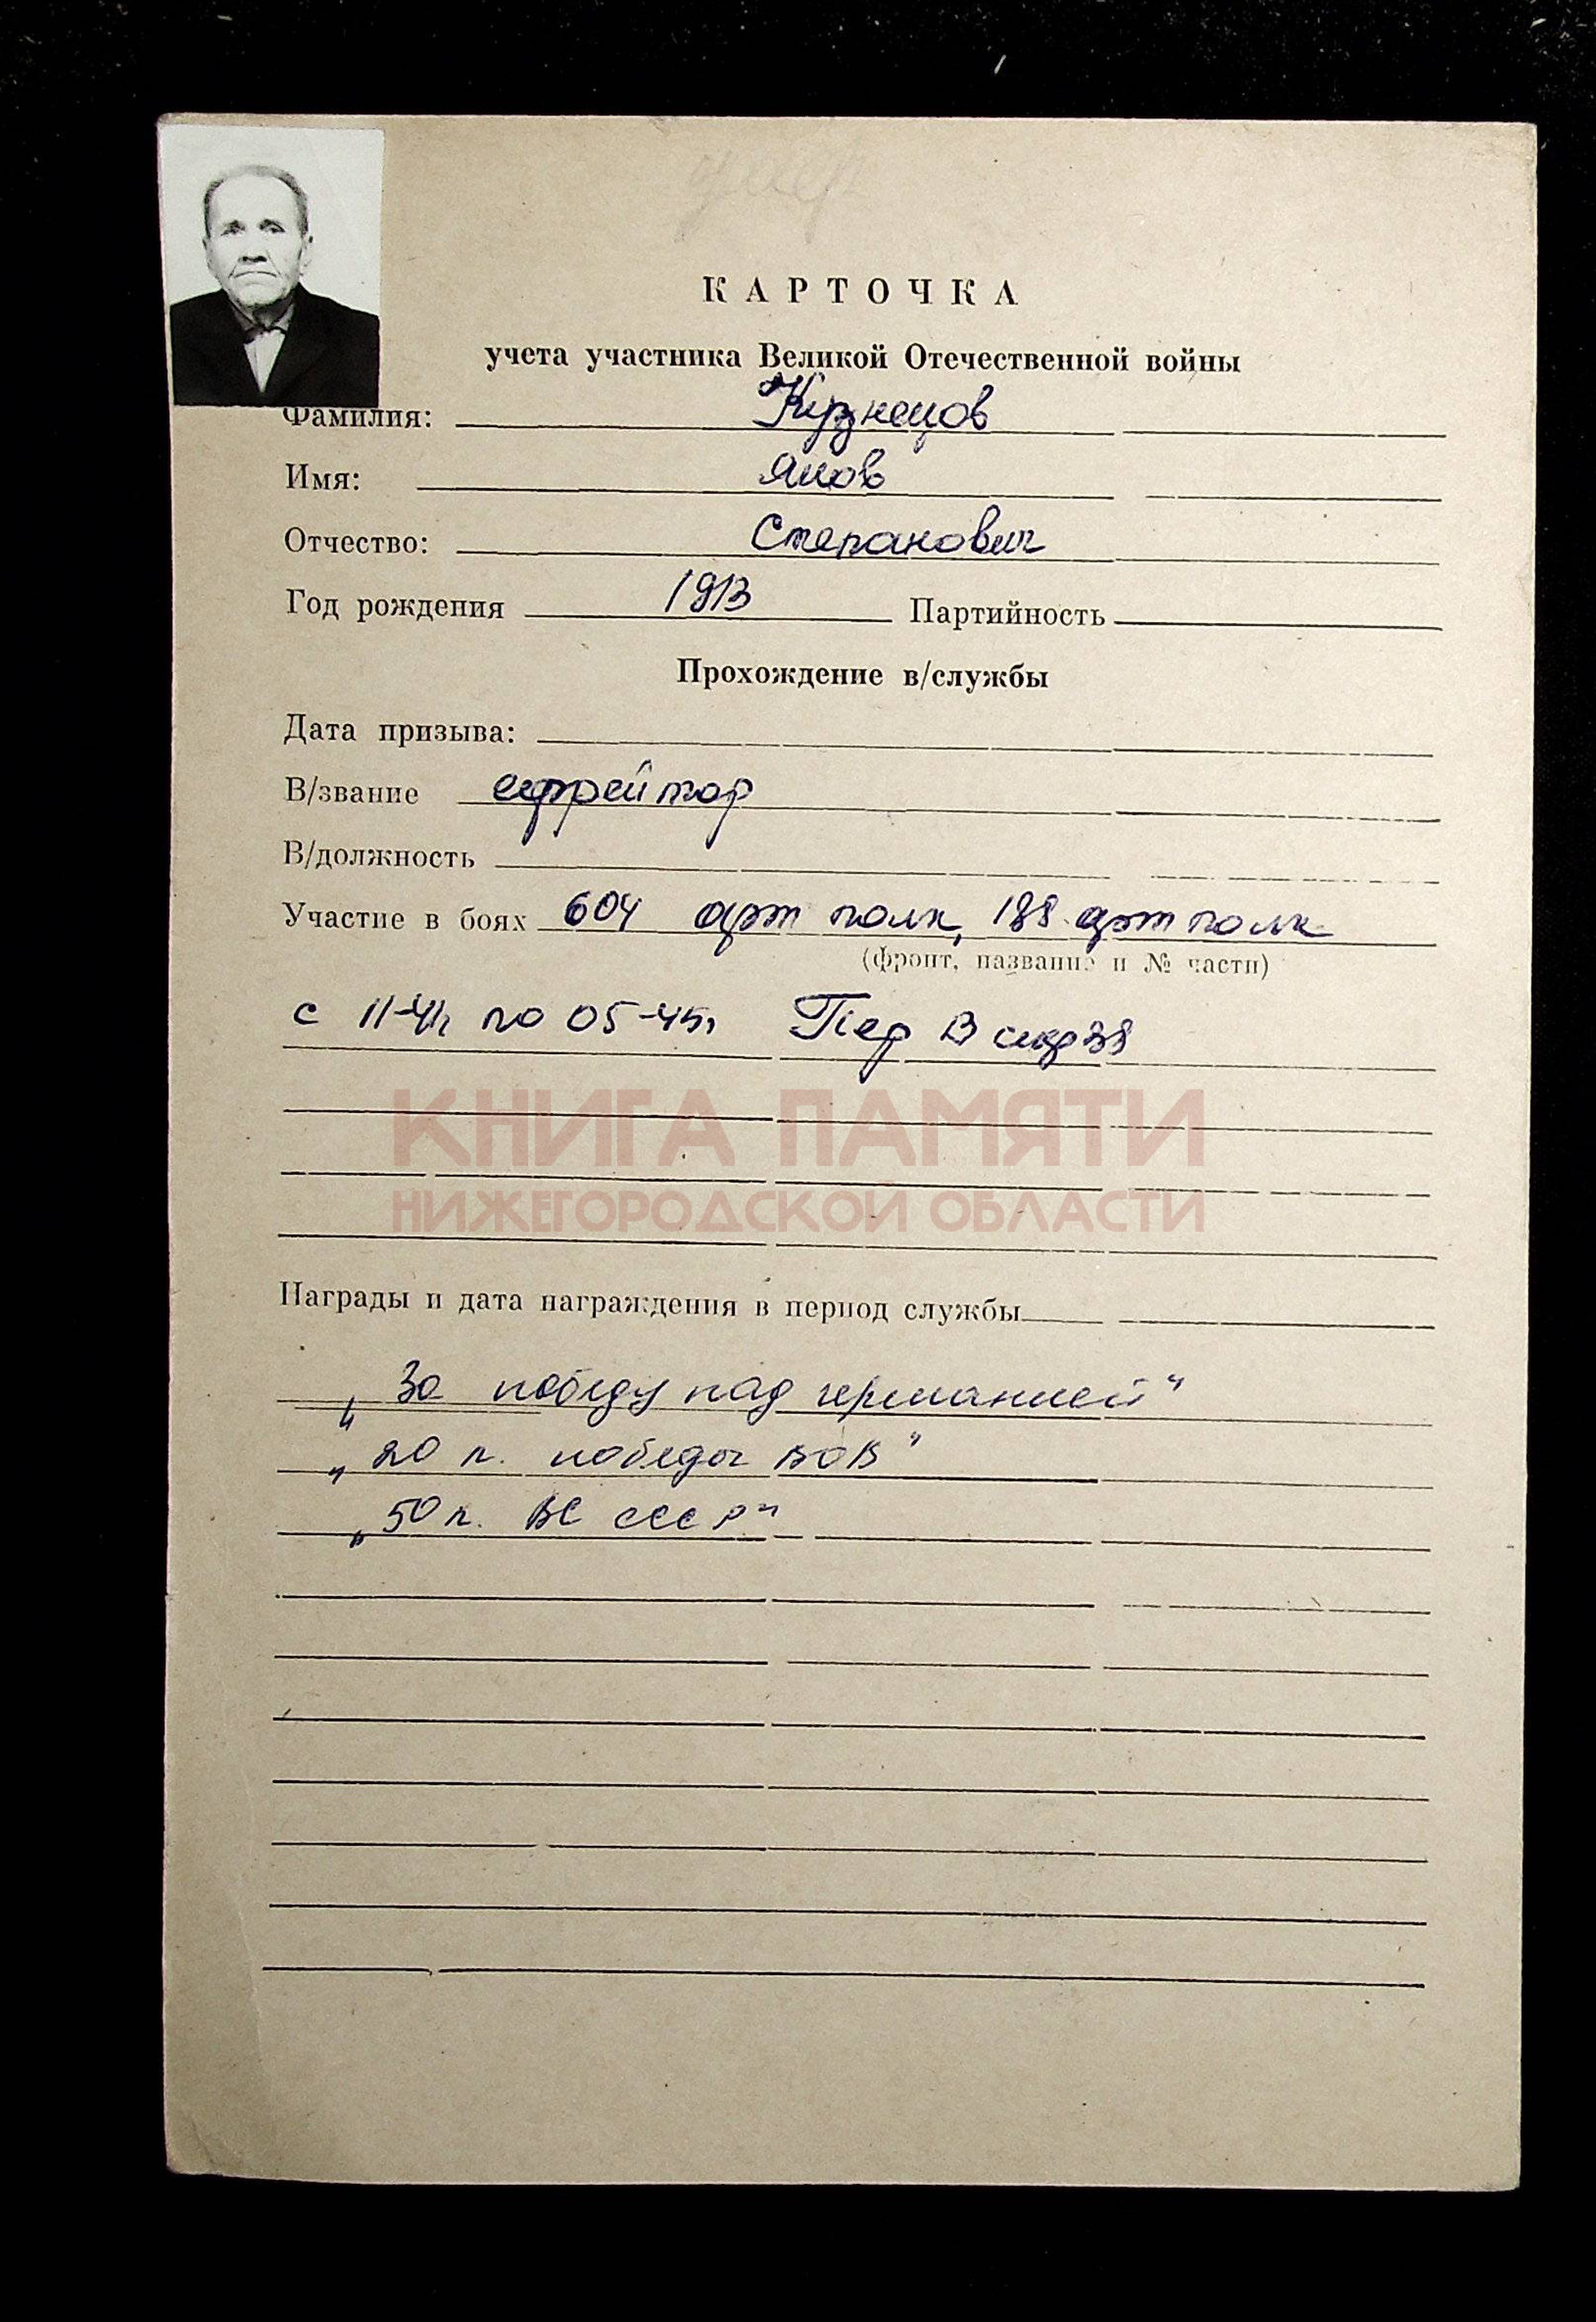 умер
КАРТОЧКА
учета участника Великой Отечественной войны
Фамилия: Кузнецов
Имя: Яков
Отчество: Степанович
Год рождения 1913 Партийность
Прохождение в/службы
Дата призыва:
В/звание ефрейтор
В/должность
Участие в боях 604 арт полк, 188 арт полк
(фронт, название и № части)
с 11-41г по 05-45г
КНИГА ПАМЯТИ
НИЖЕГОРОДСКОЙ ОБЛАСТИ
Награды и дата награждения в период службы
„За победу над германией“
„20 л. победы ВОВ“
„50 л. ВС СССР“